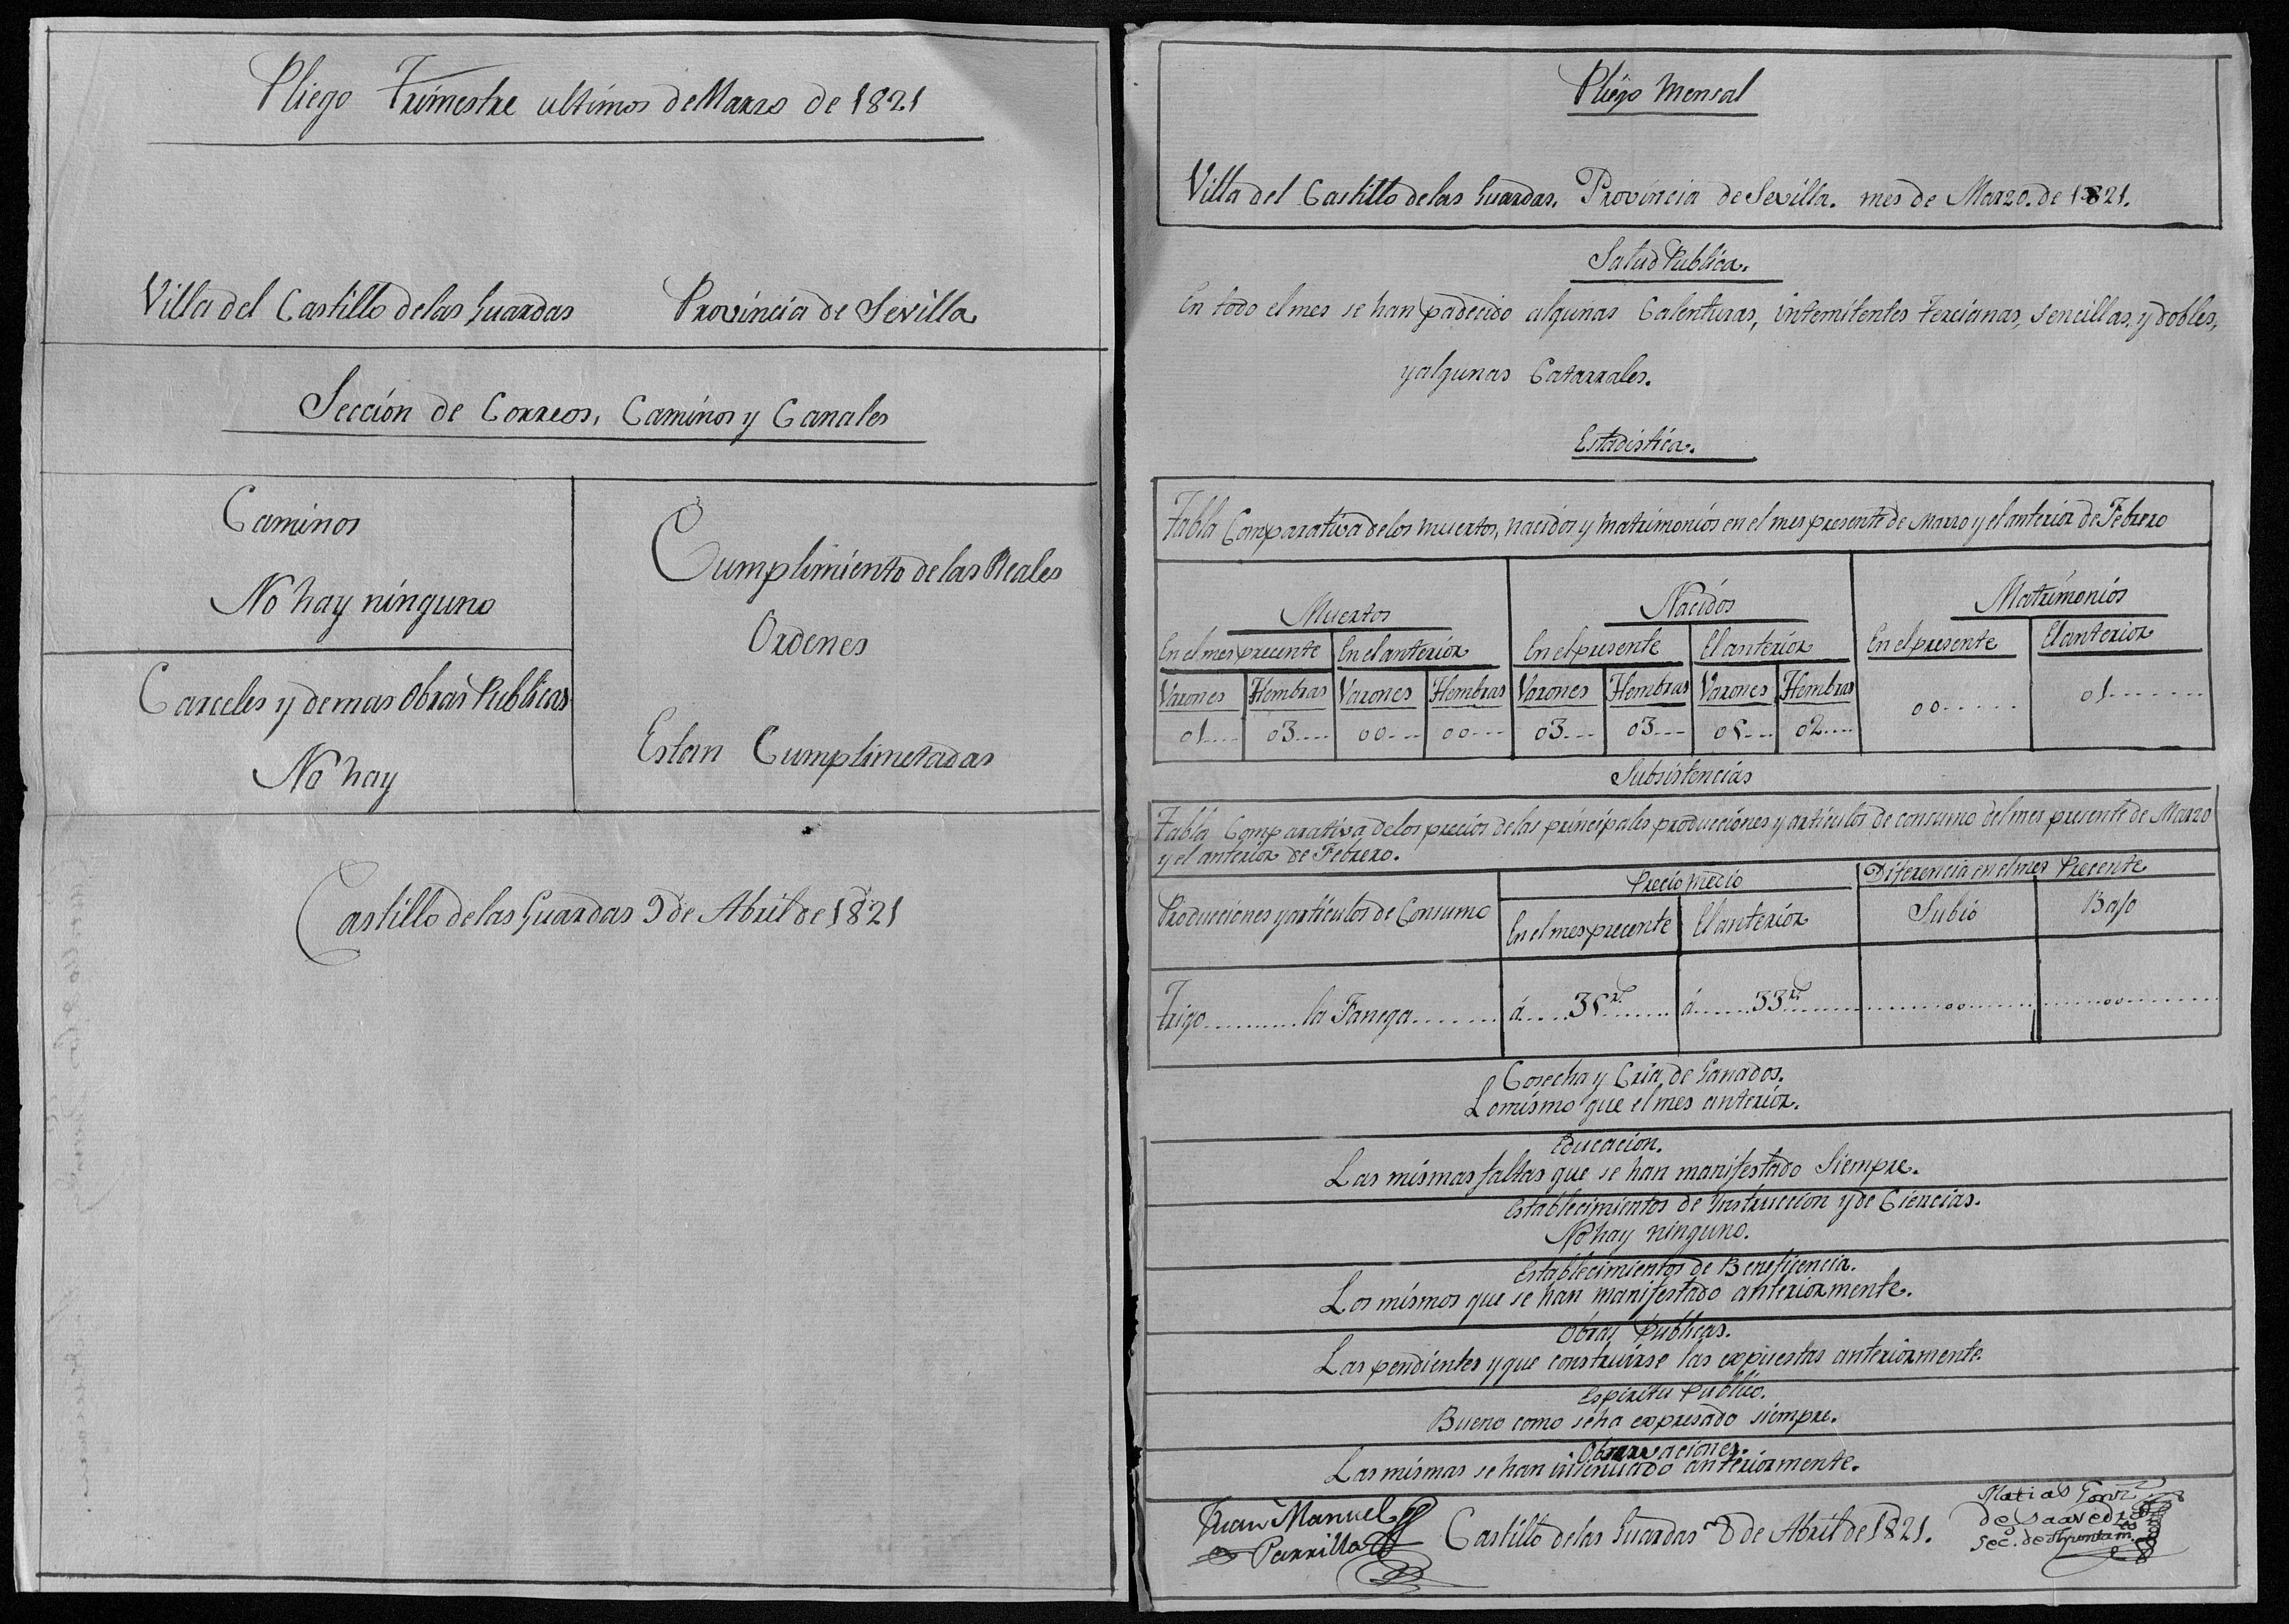 Pliego Trimestre ultimos de Marzo de 1821
Villa del Castillo de las Guardas Provincia de Sevilla
Sección de Correos, Caminos y Canales
Caminos
No hay ninguno
Carceles y demas Obras Publicas
No hay
Cumplimiento de las Reales
Ordenes
Estan Cumplimetadas
Castillo de las Guardas 9 de Abril de 1821
Pliego Mensal
Villa del Castillo de las Guardas. Provincia de Sevilla. mes de Marzo. de 1821.
Salud Publica.
En todo el mes se han padecido algunas Calenturas, intemitentes Tercianas, Sencillas, y dobles,
y algunas Catarrales.
Estadistica.
Tabla Comparativa de los muertos, nacidos y matrimonios en el mes presente de Marzo y el anterior de Febrero
Muertos Nacidos Matrimonios
En el mes precente En el anterior En el presente El anterior En el presente El anterior
Varones Hembras Varones Hembras Varones Hembras Varones Hembras
01.... 03.... 00... 00... 03... 03... 02.... 00...... 01.......
Subsistencias
Tabla Comparativa de los precios de las principales producciones y articulos de consumo del mes presente de Marzo
y el anterior de Febrero.
Producciones y articulos de Consumo Precio medio Diferencia en el mes Precente
En el mes precente El anterior Subió Bajo
Trigo........... la Fanega........ á..... r.s....... á...... 33 r.s........ ........oo........ ........oo........
Cosecha y Cria de Ganados.
Lo mismo que el mes anterior.
Educacion.
Las mismas faltas que se han manifestado Siempre.
Establecimientos de Instruccion y de Ciencias.
No hay ninguno.
Establecimientos de Benefijencia.
Los mismos que se han manifestado anteriormente.
Obras Publicas.
Las pendientes y que construirse las expuestas anteriormente.
Espiritu Publico.
Bueno como se ha expresado siempre.
Observaciones.
Las mismas se han insinuado anteriormente.
Juan Manuel
Parrilla
Castillo de las Guardas 8 de Abril de 1821.
Matias Gonz
de Saavedra
Sec. de Ayuntam